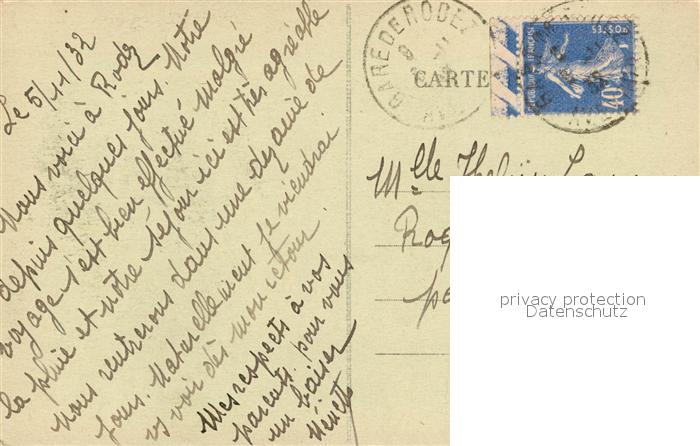 Le 5/11/32
Nous voici à Rodez
depuis quelques jours. Notre
voyage s'est bien effectué malgré
la pluie et notre séjour ici est très agréable
Nous rentrerons dans une dizaine de
jours. Naturellement je viendrai
vs voir dès mon retour.
Mes respects à vos
parents. pour vous
un baiser
GARE DE RODEZ
CARTE
POSTES FRANÇAISE
40
Mlle
privacy protection
Datenschutz